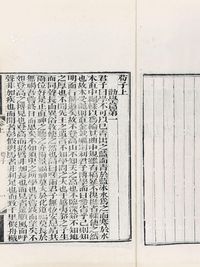 荀子上
勸學篇第一
君子曰學不可以已青出之藍而青於藍冰水爲之而寒於水
木直中繩輮以爲輪其曲中規雖有槁暴不復挺者輮使之然
也故木受繩則直金就礪則利君子博學而日參省乎己則知
明而行無過矣故不登高山不知天之高也不臨深谿不知地
之厚也不聞先王之遺言不知學問之大也干越夷貉之子生
而同聲長而異俗教使之然也詩曰嗟爾君子無恆安息靖共
爾位好是正直神之聽之介爾景福神莫大於化道福莫長於
無禍吾嘗終日而思矣不如須臾之所學也吾嘗跂而望矣不
如登高之博見也登高而招臂非加長也而見者遠順風而呼
聲非加疾也而聞者彰假輿馬者非利足也而致千里假舟檝